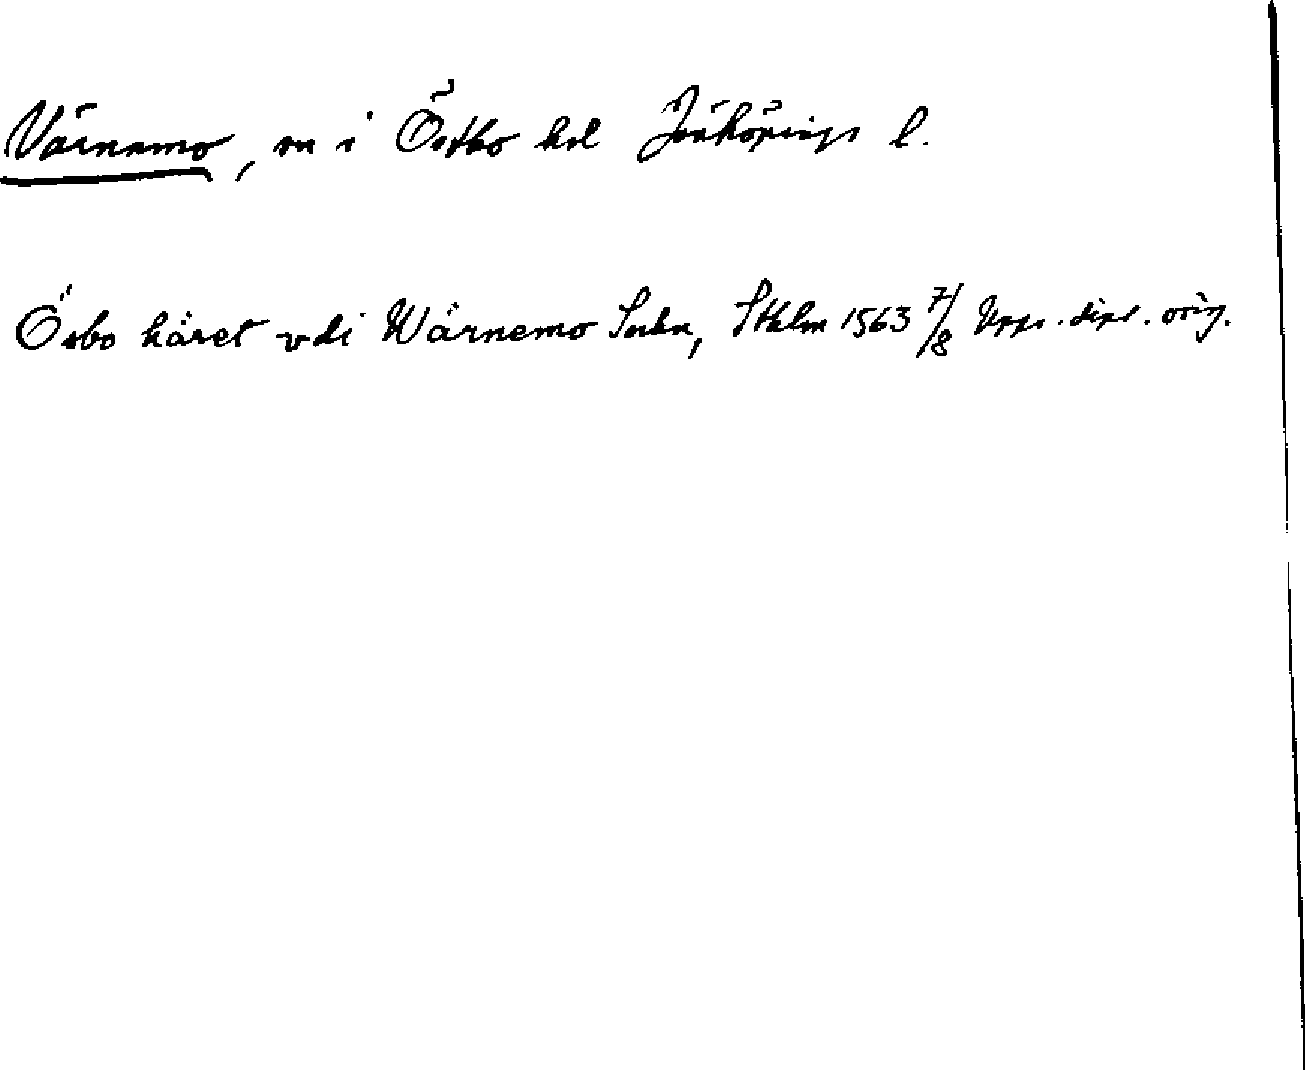 Värnamo, sn i Östbo hd Jönköpings l.
Ösbo häret vdi Wärnemo Sokn, Sthlm 1563 7/8 Upps. dipl. orig.